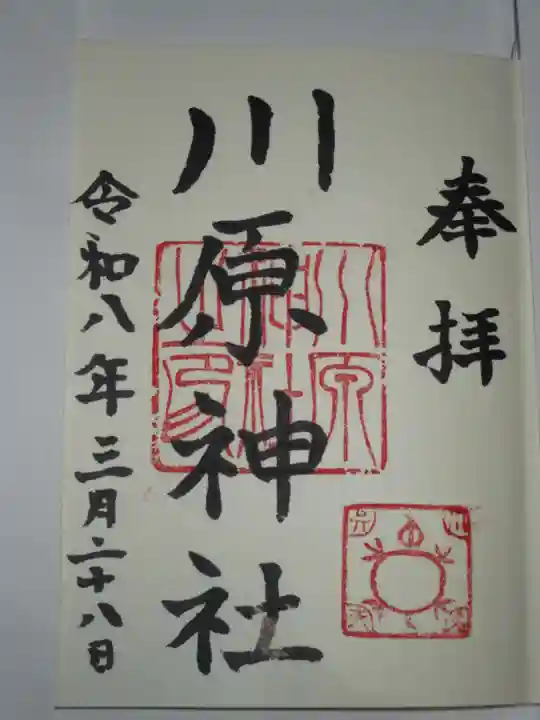 奉拝
川原神社
令和八年三月二十八日
川原神社